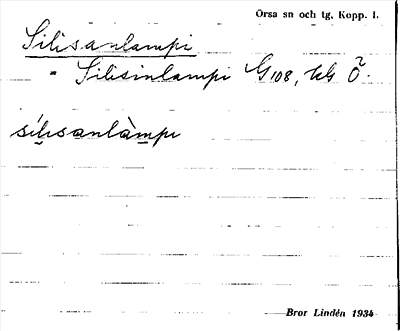 Orsa sn och tg, Kopp. l.
Silisanlampi
= Silisinlampi G 108, kls Ö.
sílisanlàmpi
Bror Lindén 1934